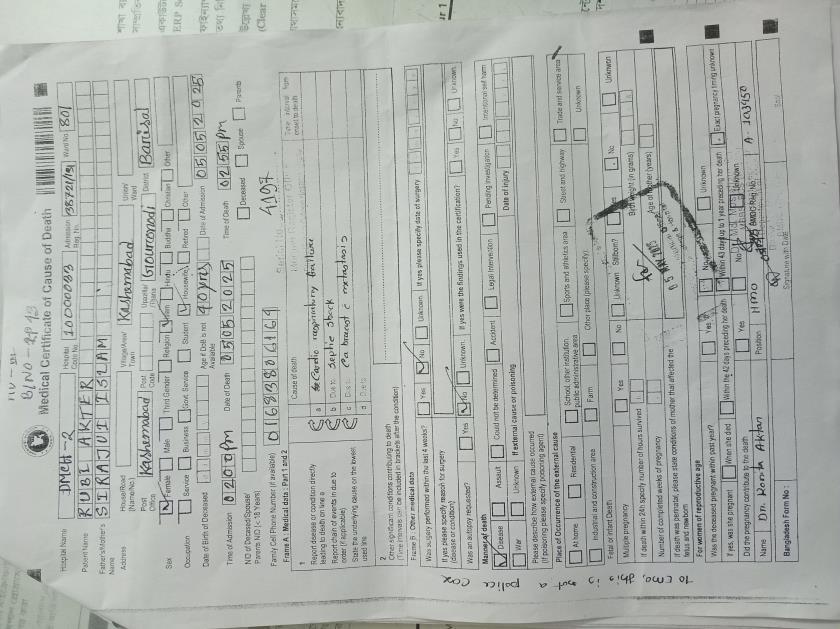 MU-III
B/NO-2P13
Medical Certificate of Cause of Death
Hospital Name DMCH-2 Hospital Code No. 10000033 Admission Reg. No. Ward No. 801
Patient Name RUBI AKTER
Father's/Mother's Name SIRAJUL ISLAM
Address House/Road (Name/No.) Village/Area/Town Kashemabad Union/Ward
Post Office Kashemabad Post Code Upazila/Thana Gournadi District Barisal
Sex Female Male Third Gender Religion Islam Hindu Buddha Christian Other
Occupation Service Business Govt. Service Student Housewife Retired Other
Date of Birth of Deceased Age if DoB is not Available 40 yrs Date of Admission 05052025
Time of Admission 0200 Pm Date of Death 05052025 Time of Death 0255 Pm
NID of Deceased/Spouse/Parents NID (< 18 Years) Deceased Spouse Parents
Family Cell Phone Number (if available) 4197
Frame A : Medical data : Part 1 and 2
1 Cause of death Time interval from onset to death
Report disease or condition directly leading to death on line a a Cardio respiratory failure
Report chain of events in due to order (if applicable) b Due to Septic shock
State the underlying cause on the lowest used line c Due to Ca breast c metastasis
d Due to
2 Other significant conditions contributing to death
(Time intervals can be included in brackets after the condition)
Frame B : Other medical data
Was surgery performed within the last 4 weeks? Yes No Unknown If yes please specify date of surgery
If yes please specify reason for surgery (disease or condition)
Was an autopsy requested? Yes No Unknown If yes were the findings used in the certification? Yes No Unknown
Manner of death
Disease Assault Could not be determined Accident Legal intervention Pending investigation Intentional self harm
War Unknown If external cause or poisoning Date of injury
Please describe how external cause occurred
(If poisoning please specify poisoning agent)
Place of Occurrence of the external cause
At home Residential School, other institution, public administrative area Sports and athletics area Street and highway Trade and service area
Industrial and construction area Farm Other place (please specify) Unknown
Fetal or infant Death
Multiple pregnancy Yes No Unknown Stillborn? No Unknown
If death within 24h specify number of hours survived Birth weight (in grams)
Number of completed weeks of pregnancy Age of mother (years)
If death was perinatal, please state conditions of mother that affected the fetus and newborn
For women of reproductive age
Was the deceased pregnant within past year? Yes No Unknown
If yes, was she pregnant When she died Within the 42 days preceding her death Within 43 days up to 1 year preceding her death Exact pregnancy timing unknown
Did the pregnancy contribute to the death Yes No Unknown
Name Position HMO BMDC Reg. No. A-
Signature with Date
Bangladesh Form No :
To EMO, This is not a police case